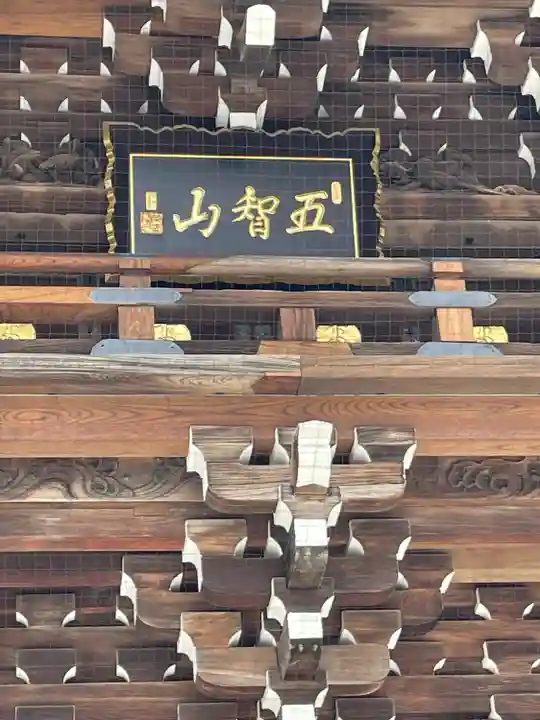 五智山